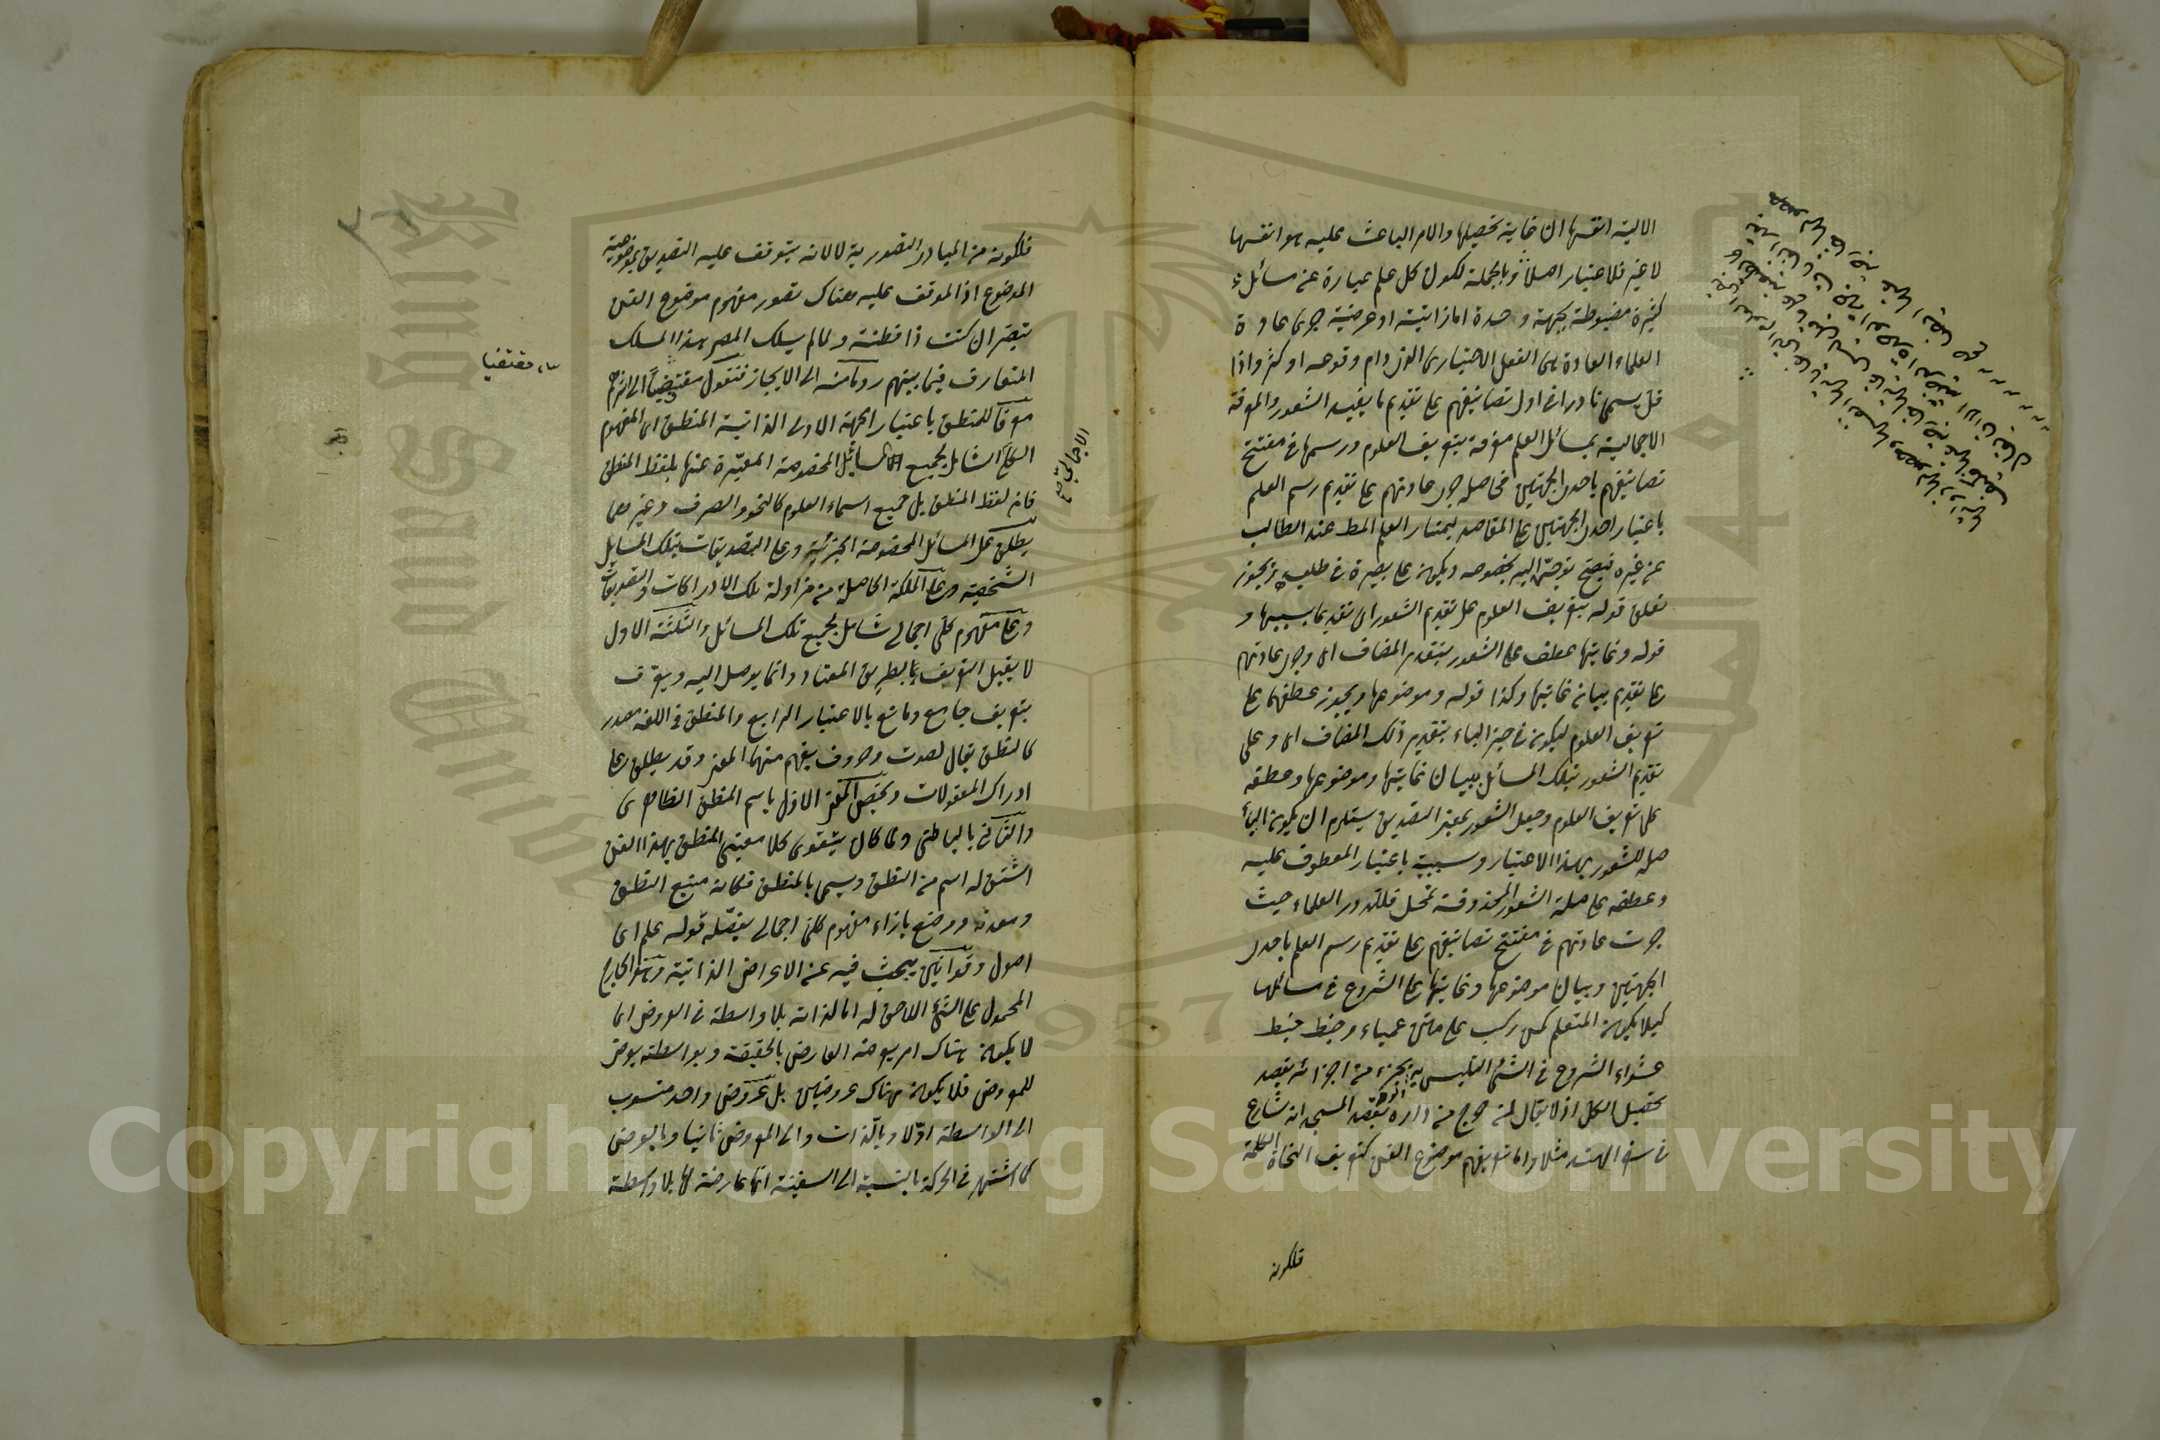 الالية انفسها ان غاية تحصيلها والامر الباعث عليه هو انفسها
لا غير فلا اعتبار اصلا وبالجملة لكون كل علم عبارة عن مسائل
كثيرة مضبوطة بجهة وحدة اما ذاتية او عرضية جرى عادة
العلماء العادة هى الفعل الاختيارى الذى دام وقوعه او كثر واذا
قل يسمى نادرا فى اول تصانيفهم على تقديم ما يفيد الشعور والمعرفة
الاجمالية بمسائل العلم معرفة بتعريف العلوم ورسمها فى مفتتح
تصانيفهم باحدى الجهتين فحاصله جرى عادتهم على تقديم رسم العلم
باعتبار احدى الجهتين على المقاصد ليمتاز العلم المط عند الطالب
عن غيره فيصح توجهه اليه بخصوصه ويكون على بصيرة فى طلبه ويجوز
تعلق قوله بتعريف العلوم على تقديم الشعور اى تقديما بسببها و
قوله وغايتها عطف على الشعور بتقدير المضاف اى وجرى عادتهم
على تقديم بيان غايتها وكذا قوله وموضوعها ويجوز عطفهما على
تعريف العلوم ليكون فى حيز الباء بتقدير ذلك المضاف اى وعلى
تقديم الشعور بتلك المسائل ببيان غايتها وموضوعها وعطفه
على تعريف العلوم وجعل الشعور بمعنى التصديق يستلزم ان يكون الباء
صلة للشعور بهذا الاعتبار وسببية باعتبار المعطوف عليه
وعطفه على صلة الشعور المحذوفة تمحل فلله در العلماء حيث
جرت عادتهم فى مفتتح تصانيفهم على تقديم رسم العلم باحدى
الجهتين وبيان موضوعها وغايتها على الشروع فى مسائلها
كيلا يكون المتعلم كمن ركب على متن عمياء وخبط خبط
عشواء الشروع فى الشئ التلبس به بجزء من اجزائه بقصد
تحصيل الكل اذ لا يقال لمن خرج من داره بقصد المسجد انه شارع
فى سفر الهند مثلا واما تعريفهم موضوع الفن كتعريف النحاة الكلمة
فلكونه
فلكونه من المبادى التصورية لا لانه يتوقف عليه التصديق بموضوعية
الموضوع اذ الموقف عليه هناك تصور مفهوم موضوع الفن
تبصر ان كنت ذا فطنة ولما لم يسلك المصر هذا المسلك
المتعارف فيما بينهم روما منه الى الايجاز فنقول مقتضيا اثرهم
معرفا للمنطق باعتبار الجهة الاولى الذاتية المنطق اى المفهوم
الكلى الشامل لجميع المسائل المخصوصة المعبرة عنها بلفظ المنطق
فان لفظ المنطق بل جميع اسماء العلوم كالنحو والصرف وغيرهما
يطلق على المسائل المخصوصة الجزئية وعلى التصديقات بتلك المسائل
الشخصية وعلى الملكة الحاصلة من مزاولة تلك الادراكات والتصديقات
وعلى مفهوم كلى اجمالى شامل لجميع تلك المسائل والثلثة الاول
لا يقبل التعريف بالطريق المعتاد وانما يوصل اليه ويعرف
بتعريف جامع ومانع بالاعتبار الرابع والمنطق فى اللغة مصدر
كالنطق يقال لصوت وحروف يفهم منهما المعنى وقد يطلق على
ادراك المعقولات ويختص المعنى الاول باسم المنطق الظاهرى
والثانى بالباطنى ولما كان يتقوى كلا معنيى المنطق بهذا الفن
اشتق له اسم من النطق ويسمى بالمنطق فكانه منبع النطق
ومعدنه ووضع بازاء مفهوم كلى اجمالى يفصله قوله علم اى
اصول وقوانين يبحث فيه عن الاعراض الذاتية وهو الخارج
المحمول على الشئ اللاحق له اما لذاته بلا واسطة فى العروض اى
لا يكون هناك امر يعرضه العارض بالحقيقة وبواسطته يعرض
للمعروض فلا يكون هناك عروضين بل عروض واحد منسوب
الى الواسطة اولا وبالذات والى المعروض ثانيا وبالعرض
كما اشتهر فى الحركة بالنسبة الى السفينة انها عارضة لها بلا واسطة
مقتفيا
الاجمالى صح
Copyright © King Saud University
King Saud University
1957